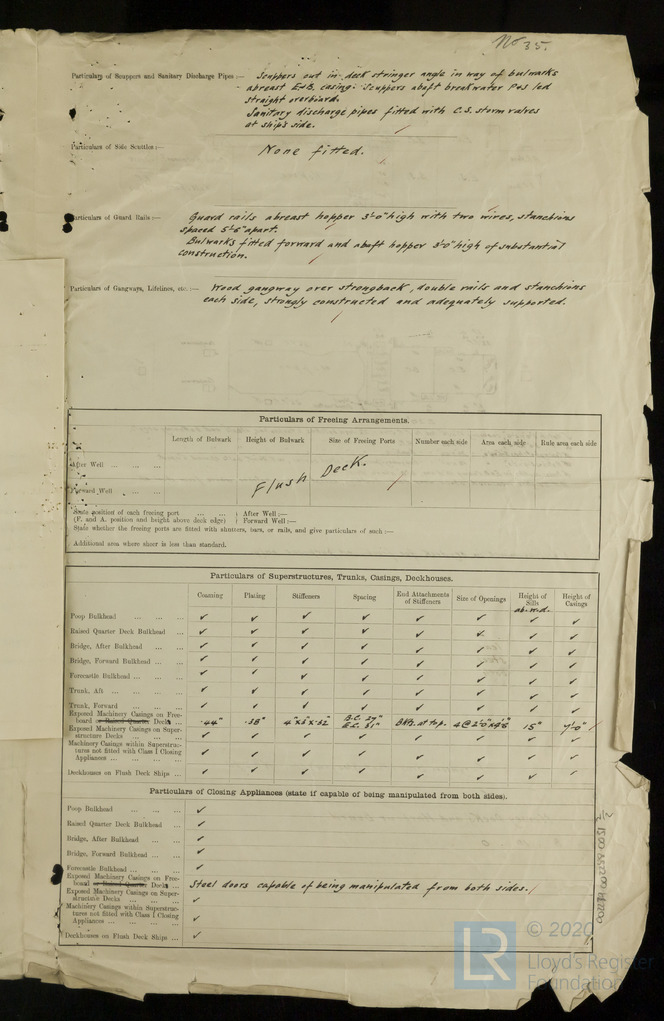 No 35.
Particulars of Scuppers and Sanitary Discharge Pipes :— Scuppers out in deck stringer angle in way of bulwarks
abreast E&B. casing. Scuppers abaft breakwater P&S led
straight overboard.
Sanitary discharge pipes fitted with C.S. storm valves
at ship's side.
Particulars of Side Scuttles :— None fitted.
Particulars of Guard Rails :— Guard rails abreast hopper 3'-0" high with two wires, stanchions
spaced 5'-6" apart.
Bulwarks fitted forward and abaft hopper 3'-0" high of substantial
construction.
Particulars of Gangways, Lifelines, etc. :— Wood gangway over strongback, double rails and stanchions
each side, strongly constructed and adequately supported.
Particulars of Freeing Arrangements.
Length of Bulwark Height of Bulwark Size of Freeing Ports Number each side Area each side Rule area each side
After Well ... ... ...
Flush Deck.
Forward Well ... ...
State position of each freeing port ... ... ) After Well :—
(F. and A. position and height above deck edge) ) Forward Well :—
State whether the freeing ports are fitted with shutters, bars, or rails, and give particulars of such :—
Additional area where sheer is less than standard.
Particulars of Superstructures, Trunks, Casings, Deckhouses.
Coaming Plating Stiffeners Spacing End Attachments of Stiffeners Size of Openings Height of Sills Height of Casings
ab. w.d.
Poop Bulkhead ... ... ... ✓ ✓ ✓ ✓ ✓ ✓ ✓ ✓
Raised Quarter Deck Bulkhead ... ✓ ✓ ✓ ✓ ✓ ✓ ✓ ✓
Bridge, After Bulkhead ... ... ✓ ✓ ✓ ✓ ✓ ✓ ✓ ✓
Bridge, Forward Bulkhead ... ... ✓ ✓ ✓ ✓ ✓ ✓ ✓ ✓
Forecastle Bulkhead ... ... ... ✓ ✓ ✓ ✓ ✓ ✓ ✓ ✓
Trunk, Aft ... ... ... ... ✓ ✓ ✓ ✓ ✓ ✓ ✓ ✓
Trunk, Forward ... ... ... ✓ ✓ ✓ ✓ ✓ ✓ ✓ ✓
Exposed Machinery Casings on Free-
board or Raised Quarter Decks ... .44" .38" 4"x3"x.32" B.C. 27" E.C. 31" Bkts. at top. 4 @ 2'0"x4'6 15" 7'-0"
Exposed Machinery Casings on Super-
structure Decks ... ... ... ✓ ✓ ✓ ✓ ✓ ✓ ✓ ✓
Machinery Casings within Superstruc-
tures not fitted with Class I Closing
Appliances ... ... ... ... ✓ ✓ ✓ ✓ ✓ ✓ ✓ ✓
Deckhouses on Flush Deck Ships ... ✓ ✓ ✓ ✓ ✓ ✓ ✓ ✓
Particulars of Closing Appliances (state if capable of being manipulated from both sides).
Poop Bulkhead ... ... ... ✓
Raised Quarter Deck Bulkhead ... ✓
Bridge, After Bulkhead ... ... ✓
Bridge, Forward Bulkhead ... ... ✓
Forecastle Bulkhead ... ... ... ✓
Exposed Machinery Casings on Free-
board or Raised Quarter Decks ... Steel doors capable of being manipulated from both sides.
Exposed Machinery Casings on Super-
structure Decks ... ... ... ✓
Machinery Casings within Superstruc-
tures not fitted with Class I Closing
Appliances ... ... ... ... ✓
Deckhouses on Flush Deck Ships ... ✓
© 2020
LR
Lloyd's Register
Foundation